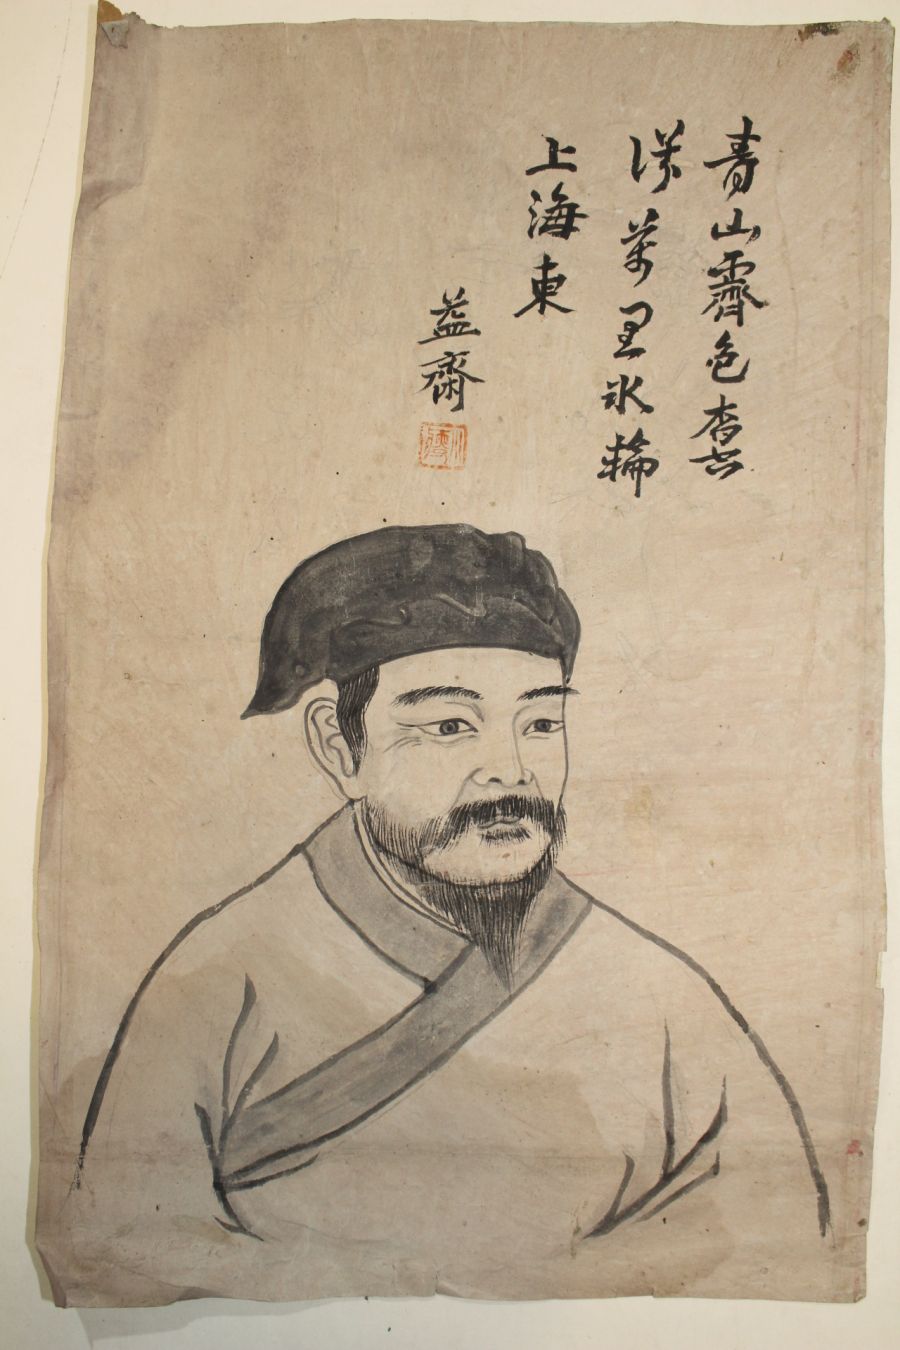 青山霽色杳空
濛萬里氷輪
上海東
益齋